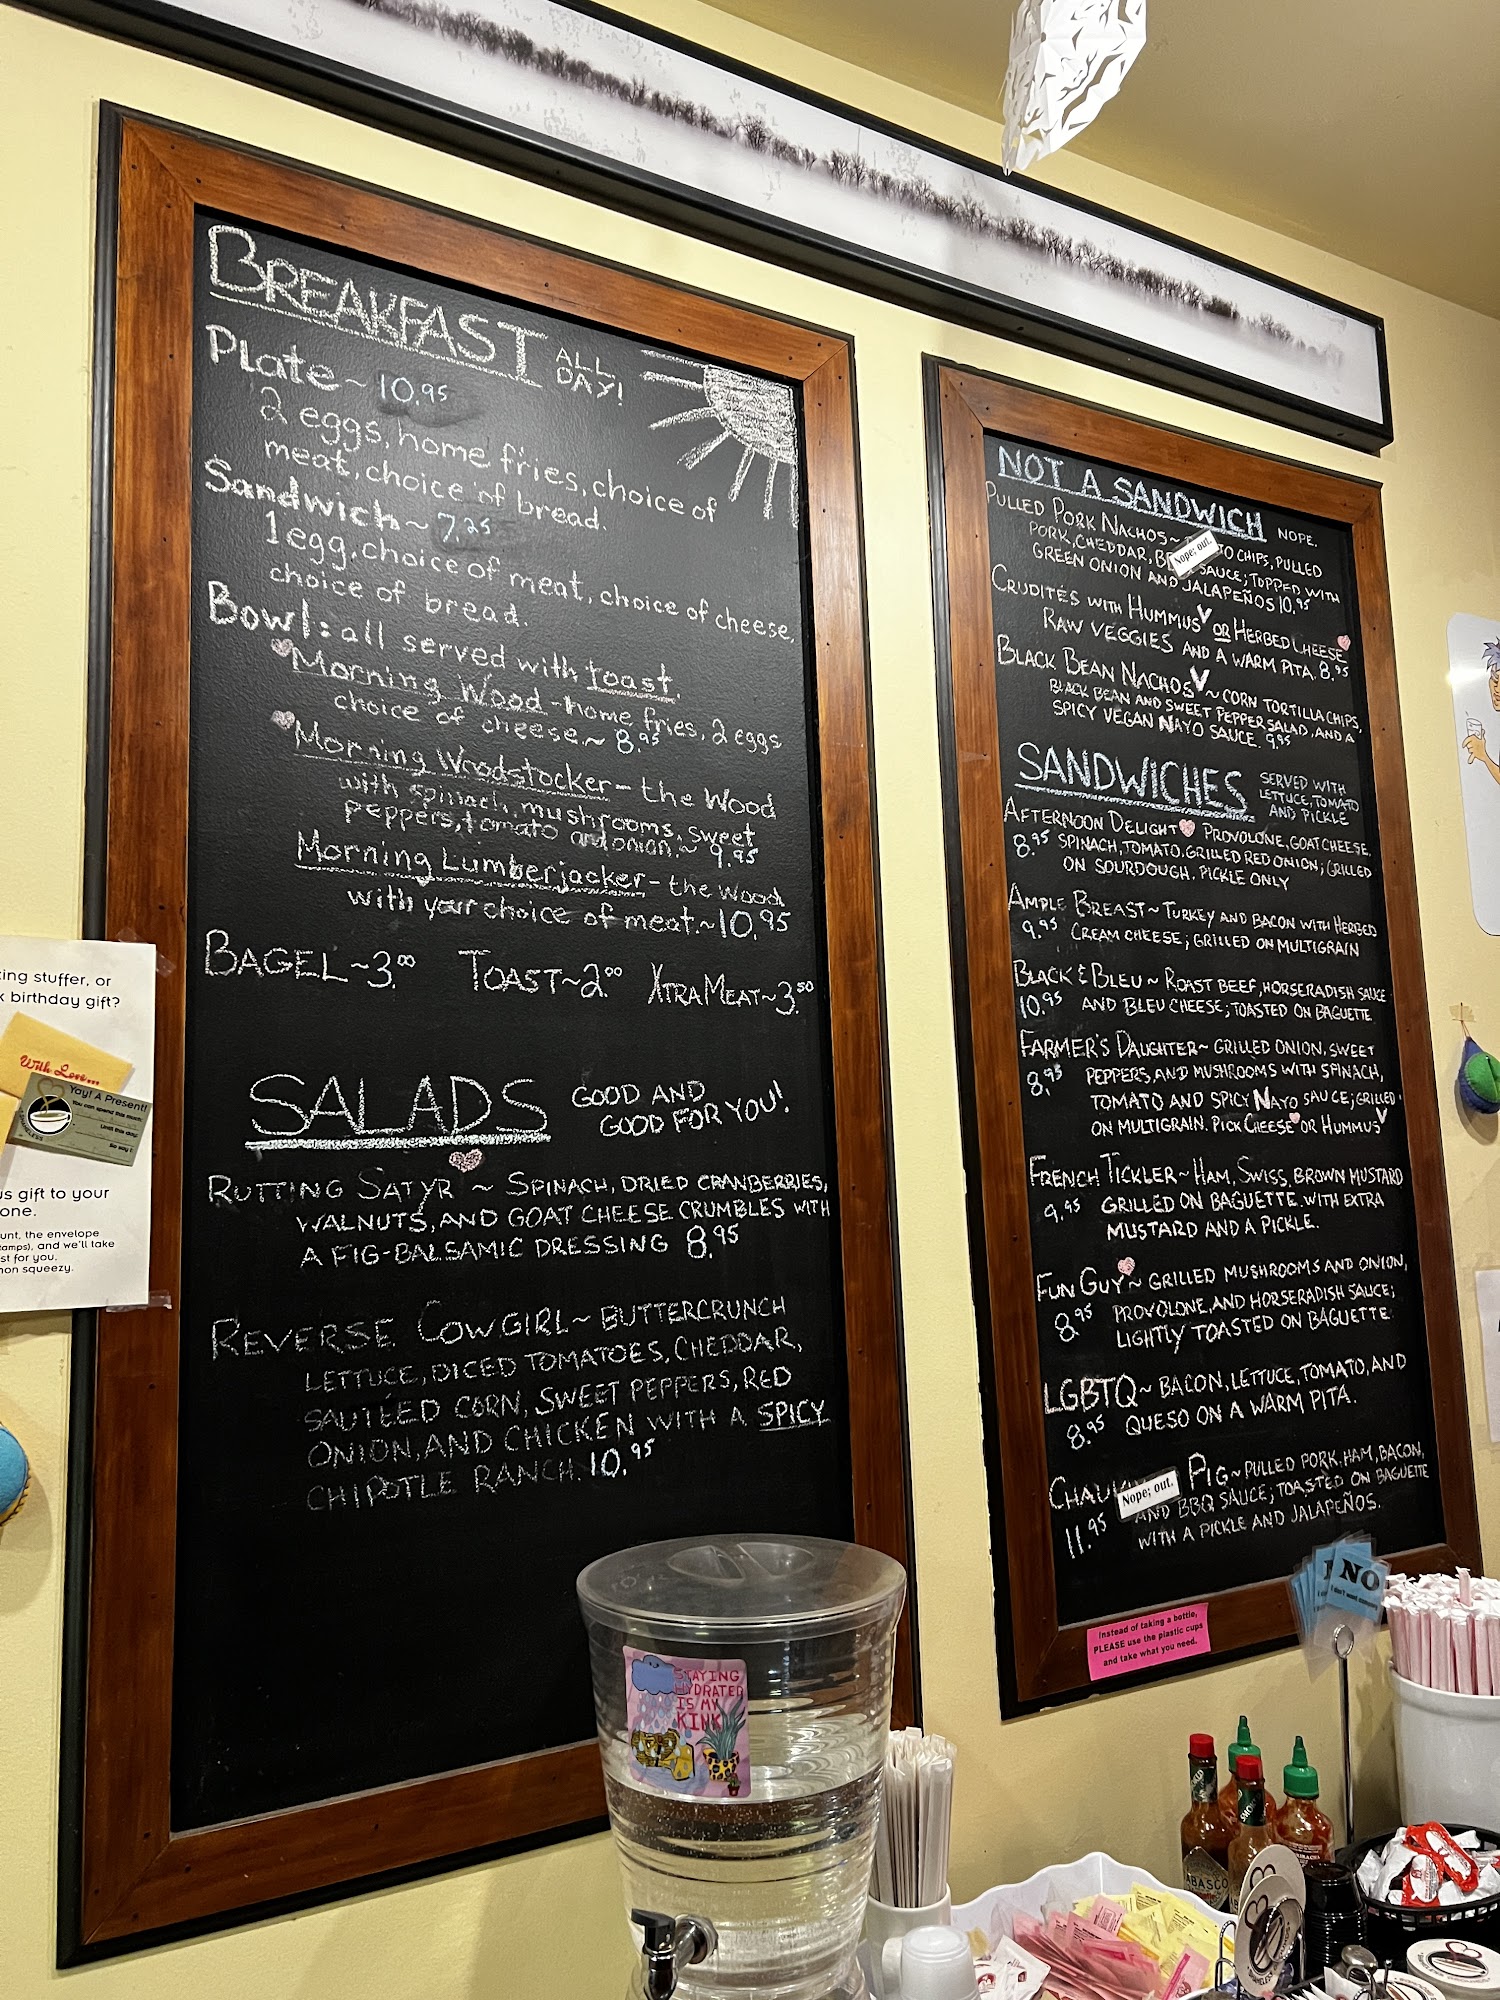 BREAKFAST ALL DAY!
Plate ~ 10.95
2 eggs, home fries, choice of
meat, choice of bread.
Sandwich ~ 7.25
1 egg, choice of meat, choice of cheese,
choice of bread.
Bowl: all served with toast.
Morning Wood - home fries, 2 eggs
choice of cheese. ~ 8.95
Morning Woodstocker - the Wood
with spinach, mushrooms, sweet
peppers, tomato and onion. ~ 9.95
Morning Lumberjacker - the Wood
with your choice of meat. ~ 10.95
BAGEL ~ 3.00 TOAST ~ 2.00 XTRA MEAT ~ 3.50
SALADS GOOD AND
GOOD FOR YOU!
RUTTING SATYR ~ SPINACH, DRIED CRANBERRIES,
WALNUTS, AND GOAT CHEESE CRUMBLES WITH
A FIG-BALSAMIC DRESSING 8.95
REVERSE COWGIRL ~ BUTTERCRUNCH
LETTUCE, DICED TOMATOES, CHEDDAR,
SAUTÉED CORN, SWEET PEPPERS, RED
ONION, AND CHICKEN WITH A SPICY
CHIPOTLE RANCH. 10.95
NOT A SANDWICH NOPE.
PULLED PORK NACHOS ~ TO CHIPS, PULLED
Nope; out.
PORK, CHEDDAR, SAUCE; TOPPED WITH
GREEN ONION AND JALAPEÑOS 10.95
CRUDITÉS WITH HUMMUS V OR HERBED CHEESE
RAW VEGGIES AND A WARM PITA. 8.95
BLACK BEAN NACHOS V ~ CORN TORTILLA CHIPS,
BLACK BEAN AND SWEET PEPPER SALAD, AND A
SPICY VEGAN NAYO SAUCE. 9.95
SANDWICHES SERVED WITH
LETTUCE, TOMATO
AND PICKLE
AFTERNOON DELIGHT PROVOLONE, GOAT CHEESE,
8.95 SPINACH, TOMATO, GRILLED RED ONION; GRILLED
ON SOURDOUGH. PICKLE ONLY
AMPLE BREAST ~ TURKEY AND BACON WITH HERBED
9.95 CREAM CHEESE; GRILLED ON MULTIGRAIN
BLACK & BLEU ~ ROAST BEEF, HORSERADISH SAUCE
10.95 AND BLEU CHEESE; TOASTED ON BAGUETTE
FARMER'S DAUGHTER ~ GRILLED ONION, SWEET
8.95 PEPPERS, AND MUSHROOMS WITH SPINACH,
TOMATO AND SPICY NAYO SAUCE; GRILLED
ON MULTIGRAIN. PICK CHEESE OR HUMMUS V
FRENCH TICKLER ~ HAM, SWISS, BROWN MUSTARD
9.95 GRILLED ON BAGUETTE WITH EXTRA
MUSTARD AND A PICKLE.
FUN GUY ~ GRILLED MUSHROOMS AND ONION,
8.95 PROVOLONE, AND HORSERADISH SAUCE;
LIGHTLY TOASTED ON BAGUETTE
LGBTQ ~ BACON, LETTUCE, TOMATO, AND
8.95 QUESO ON A WARM PITA.
PIG ~ PULLED PORK, HAM, BACON,
Nope; out.
11.95 AND BBQ SAUCE; TOASTED ON BAGUETTE
WITH A PICKLE AND JALAPEÑOS.
stuffer, or
birthday gift?
With Love...
Yay! A Present!
You can spend this much:
Until this day:
gift to your
one.
the envelope
and we'll take
st for you.
squeezy.
Instead of taking a bottle,
PLEASE use the plastic cups
and take what you need.
NO
STAYING
HYDRATED
IS MY
KINK